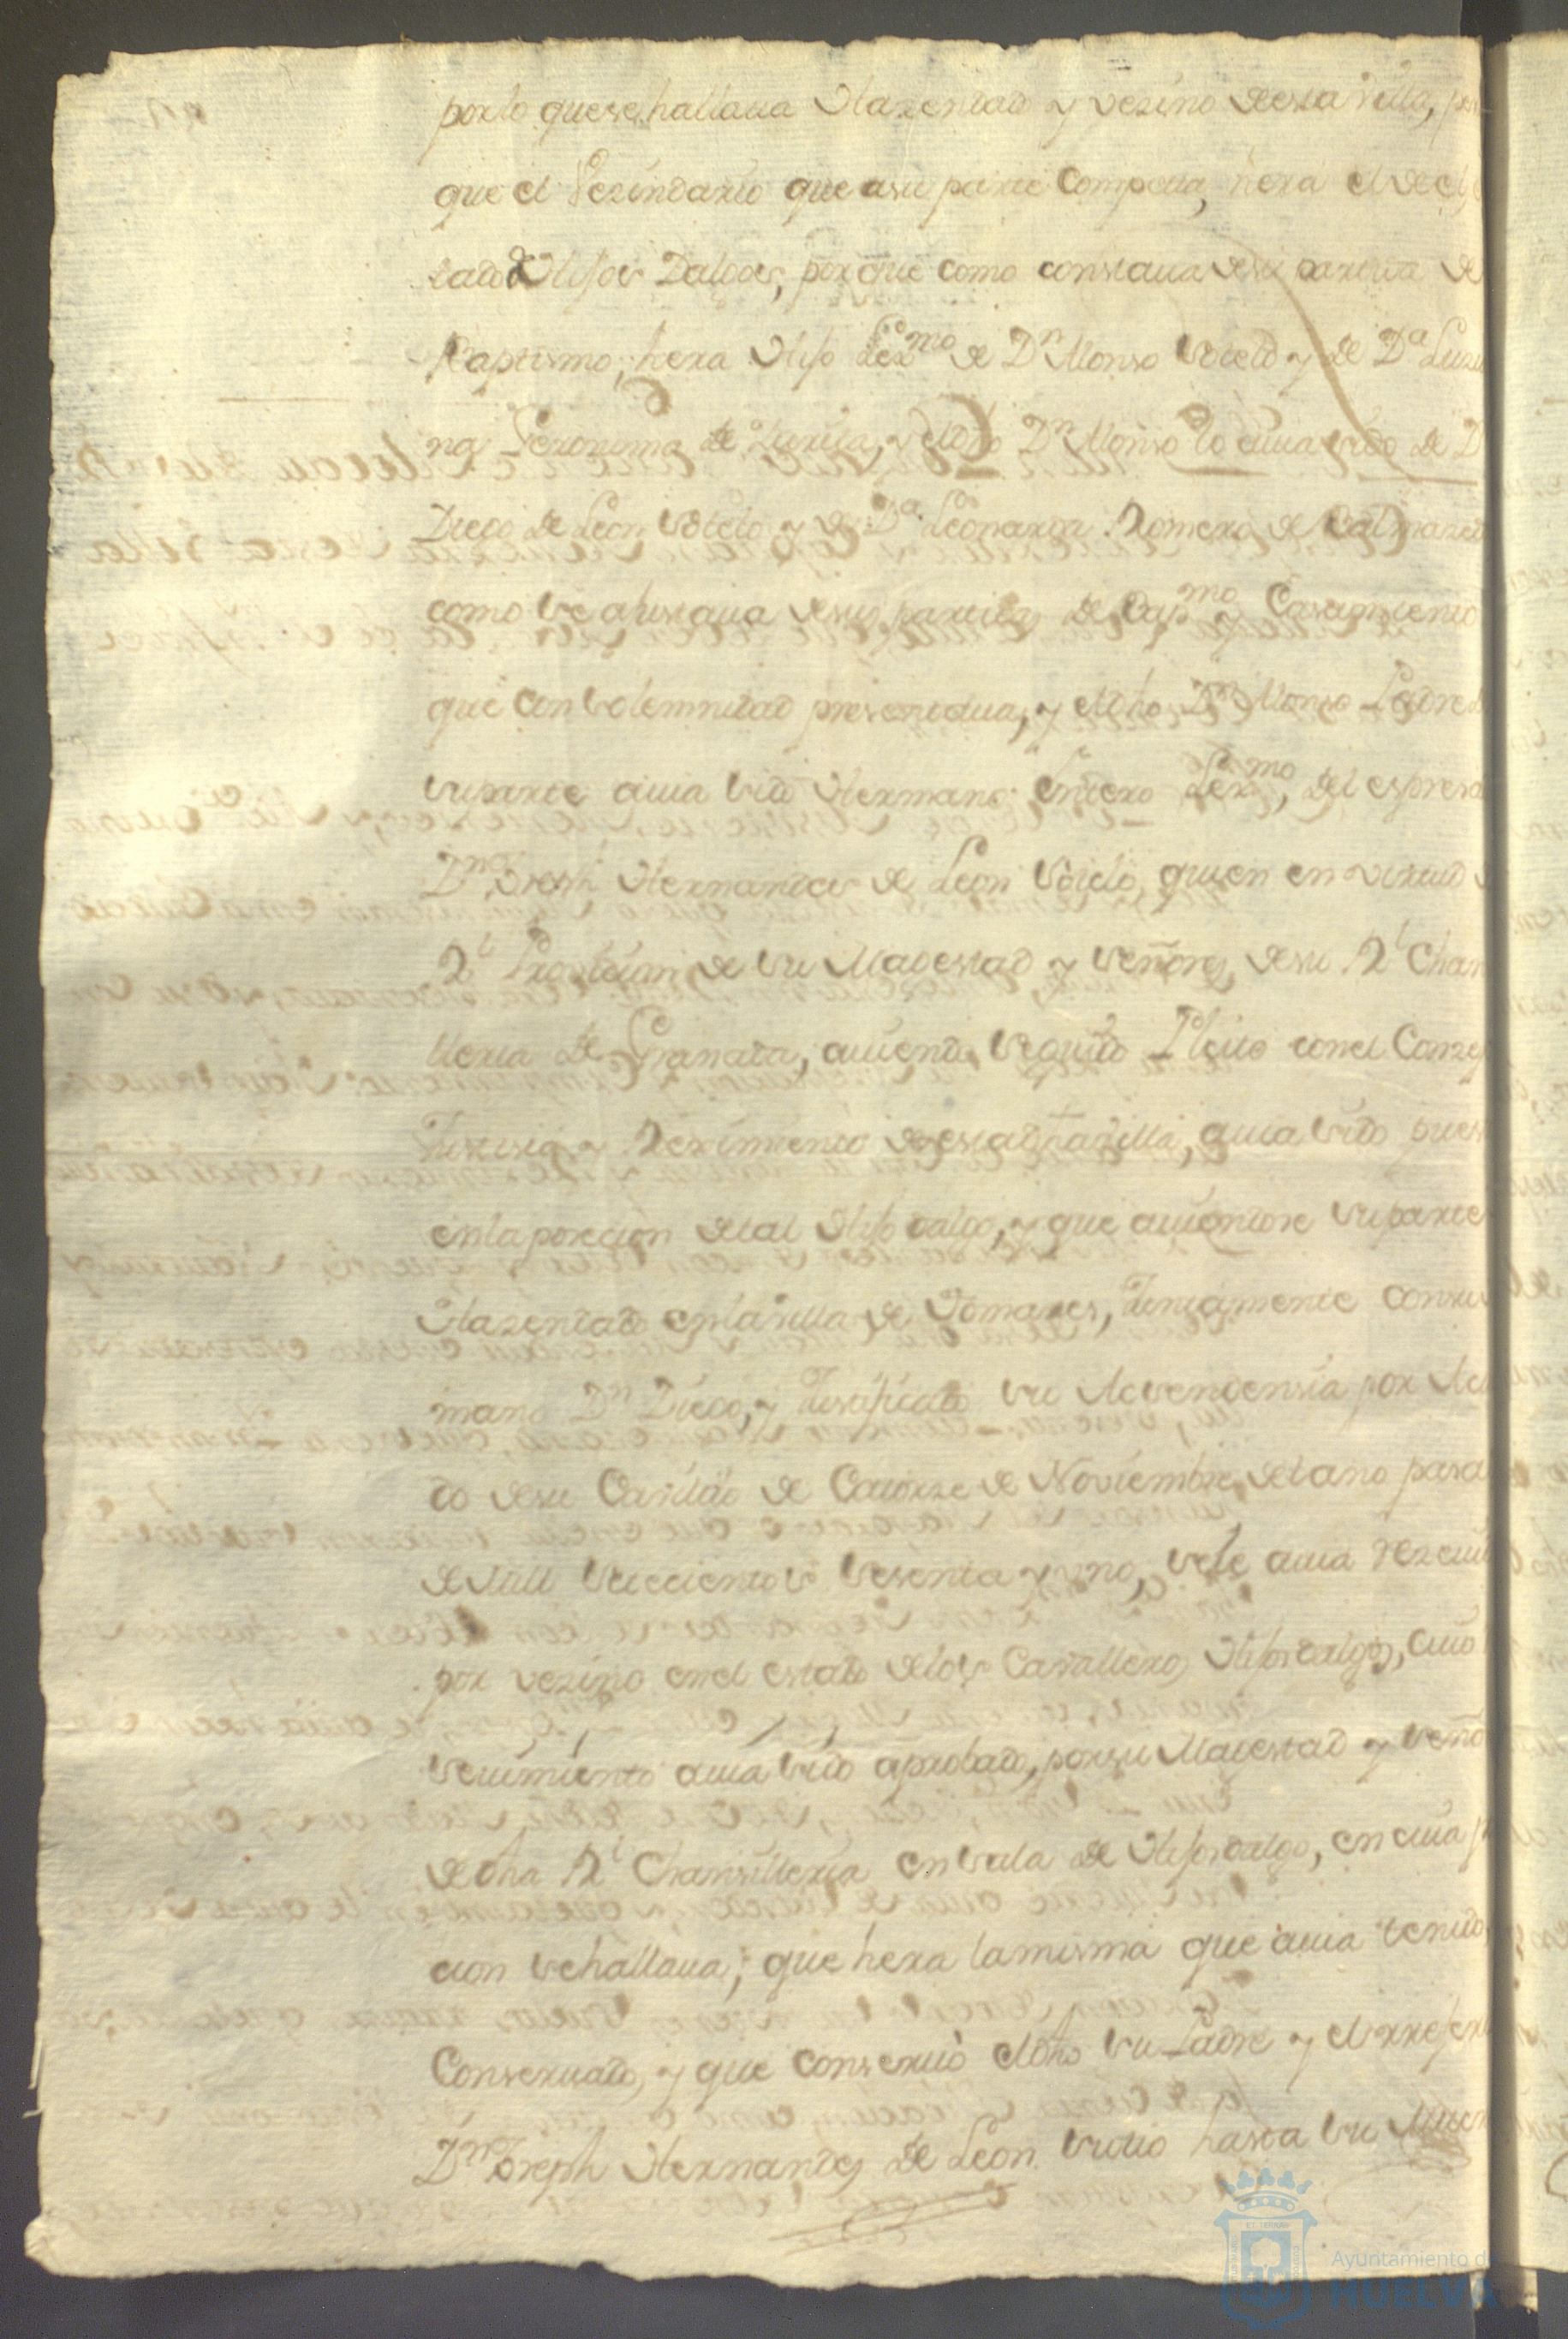 por lo que se hallaua Hazendado y vezino de esta villa, por
que el Vezindario que a su parte Competia, hera el del es
tado de Hijos Dalgos, porque como constaua de su partida de
Baptismo, hera Hijo Lexmo de Dn Alonso Sotelo y de Da Luzia
na Geronima de Zurita, y el dho Dn Alonso lo auia sido de Dn
Diego de Leon Sotelo y de Da Leonarda Romero de
como se ajustaua de sus partidas de Bapmo y Casamiento
que con solemnidad presentaua, y el dho Dn Alonso Padre de
su parte auia sido Hermano entero Lexmo, del espresado
Dn Joseph Hernandes de Leon Sotelo, quien en virtud de
Rl Prouicion de su Magestad y Señores de su Rl Chan
lleria de Granada, auiendo seguido Pleito con el Conzejo
Justisia y Reximiento de esta dha villa, auia sido puesto
en la posecion de tal Hijo dalgo, y que auiendose su parte
Hazendado en la villa de Tomares, Juntamente con su
mano Dn Diego, y Justificado su Desendensia por Acu
do de su Cavildo de Catorze de Noviembre del año pasa
de Mill Setecientos Sesenta y uno, se le auia rezeuido
por vezino en el estado de los Cavalleros Hijosdalgos, cuio
Seuimiento auia sido aprobado, por su Magestad y Señores
de dha Rl Chansilleria en Sala de Hijosdalgo, en cuia p
cion se hallaua, que hera la misma que auia tenido,
Conseruado, y que conseruò el dho su Padre y el rrefer
Dn Joseph Hernandes de Leon su tio hasta su Muer
Ayuntamiento de
HUELVA